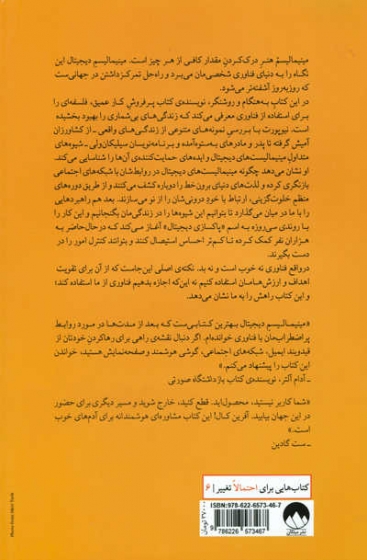 مینیمالیسم هنرِ درک‌کردنِ مقدار کافی از هر چیز است. مینیمالیسم دیجیتال این
نگاه را به دنیای فناوری شخصی‌مان می‌برد و راه‌حل تمرکزداشتن در جهانی‌ست
که روزبه‌روز آشفته‌تر می‌شود.
در این کتابِ به‌هنگام و روشنگر، نویسنده‌ی کتاب پرفروش کار عمیق، فلسفه‌ای را
برای استفاده از فناوری معرفی می‌کند که زندگی‌های بی‌شماری را بهبود بخشیده
است. نیوپورت با بررسی نمونه‌های متنوعی از زندگی‌های واقعی ـ از کشاورزان
آمیش گرفته تا پدر و مادرهای به‌ستوه‌آمده و برنامه‌نویسان سیلیکان‌ولی ـ شیوه‌های
متداول مینیمالیست‌های دیجیتال و ایده‌های حمایت‌کننده‌ی آن‌ها را شناسایی می‌کند.
او نشان می‌دهد چگونه مینیمالیست‌های دیجیتال در روابط‌شان با شبکه‌های اجتماعی
بازنگری کرده و لذت‌های دنیای برون‌خط را دوباره کشف می‌کنند و از طریق دوره‌های
منظم خلوت‌گزینی، ارتباط با خودِ درونی‌شان را از نو می‌سازند. بعد هم راهبردهایی
را با ما در میان می‌گذارد تا بتوانیم این شیوه‌ها را در زندگی‌مان بگنجانیم و این کار را
با روندی سی‌روزه به اسم «پاکسازی دیجیتال» آغاز می‌کند که درحال‌حاضر به
هزاران نفر کمک کرده تا کم‌تر احساس استیصال کنند و بتوانند کنترل امور را در
دست بگیرند.
درواقع فناوری نه خوب است و نه بد. نکته‌ی اصلی این‌جاست که از آن برای تقویت
اهداف و ارزش‌هامان استفاده کنیم نه این‌که اجازه بدهیم فناوری از ما استفاده کند؛
و این کتاب راهش را به ما نشان می‌دهد.
«مینیمالیسم دیجیتال بهترین کتابی‌ست که بعد از مدت‌ها در مورد روابط
پراضطراب‌مان با فناوری خوانده‌ام. اگر دنبال نقشه‌ی راهی برای رهاکردن خودتان از
قیدوبند ایمیل، شبکه‌های اجتماعی، گوشی هوشمند و صفحه‌نمایش هستید، خواندن
این کتاب را پیشنهاد می‌کنم.»
ـ آدام آلتر، نویسنده‌ی کتاب بازداشتگاه صورتی
«شما کاربر نیستید، محصول‌اید. قطع کنید، خارج شوید و مسیر دیگری برای حضور
در این جهان بیابید. آفرین کال! این کتاب مشاوره‌ای هوشمندانه برای آدم‌های خوب
است.»
ـ ست گادین
کتاب‌هایی برای احتمالاً تغییر | ۶
ISBN: 978-622-6573-46-7
۳۷۰۰۰ تومان
9 786226 573467
نشر میلکان